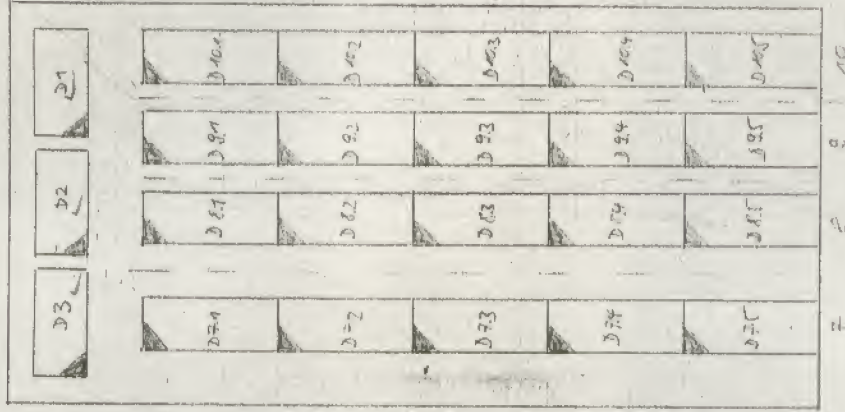 D1
D2
D3
D 10.1
D 10.2
D 10.3
D 10.4
D 10.5
D 9.1
D 9.2
D 9.3
D 9.4
D 9.5
D 8.1
D 8.2
D 8.3
D 8.4
D 8.5
D 7.1
D 7.2
D 7.3
D 7.4
D 7.5
10
9
8
7